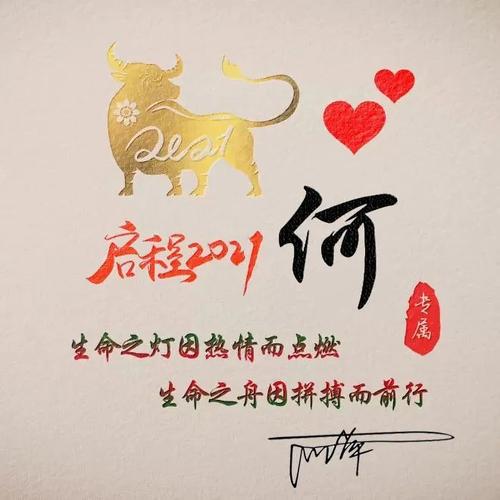 2021
启程2021
何
专属
生命之灯因热情而点燃
生命之舟因拼搏而前行